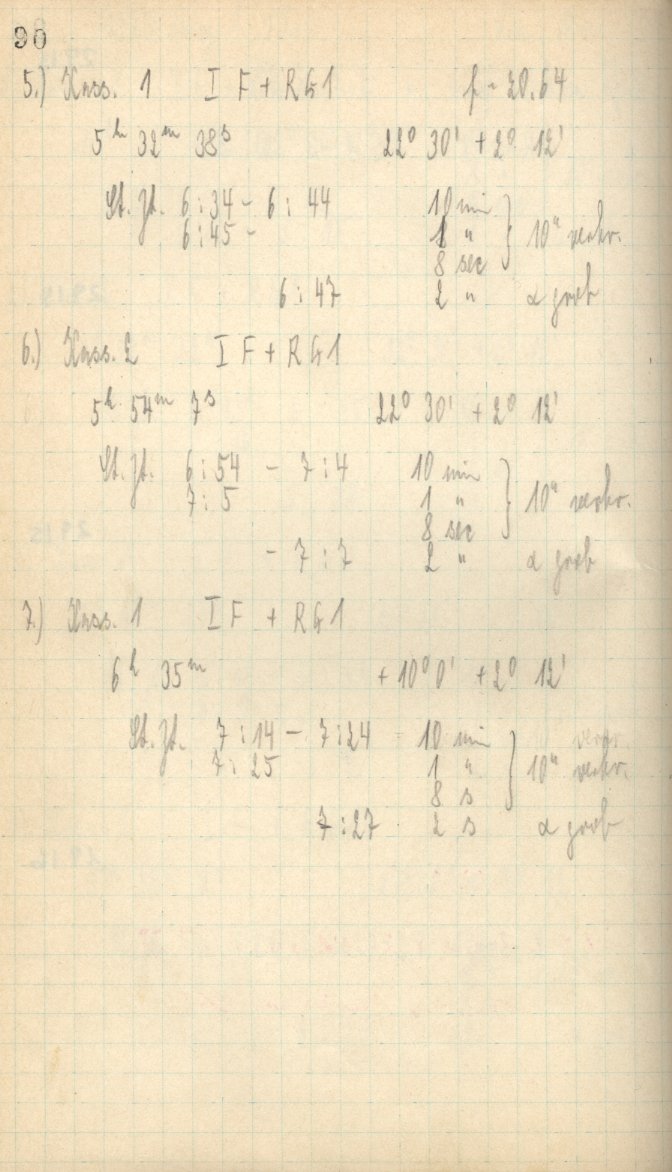 90
5.) Kass. 1 I F + RG1 f = 20.64
5h 32m 38s 22° 30' + 2° 12'
St. Zt. 6:34 - 6:44 10 min
6:45 - 1 " } 10" verkr.
8 sec
6:47 2 " α grob
6.) Kass. 2 I F + RG1
5h 54m 7s 22° 30' + 2° 12'
St. Zt. 6:54 - 7:4 10 min
7:5 1 " } 10" verkr.
8 sec
- 7:7 2 " α grob
7.) Kass. 1 I F + RG1
6h 35m + 10° 0' + 2° 12'
St. Zt. 7:14 - 7:24 10 min
7:25 1 " } 10" verkr.
8 s
7:27 2 s α grob